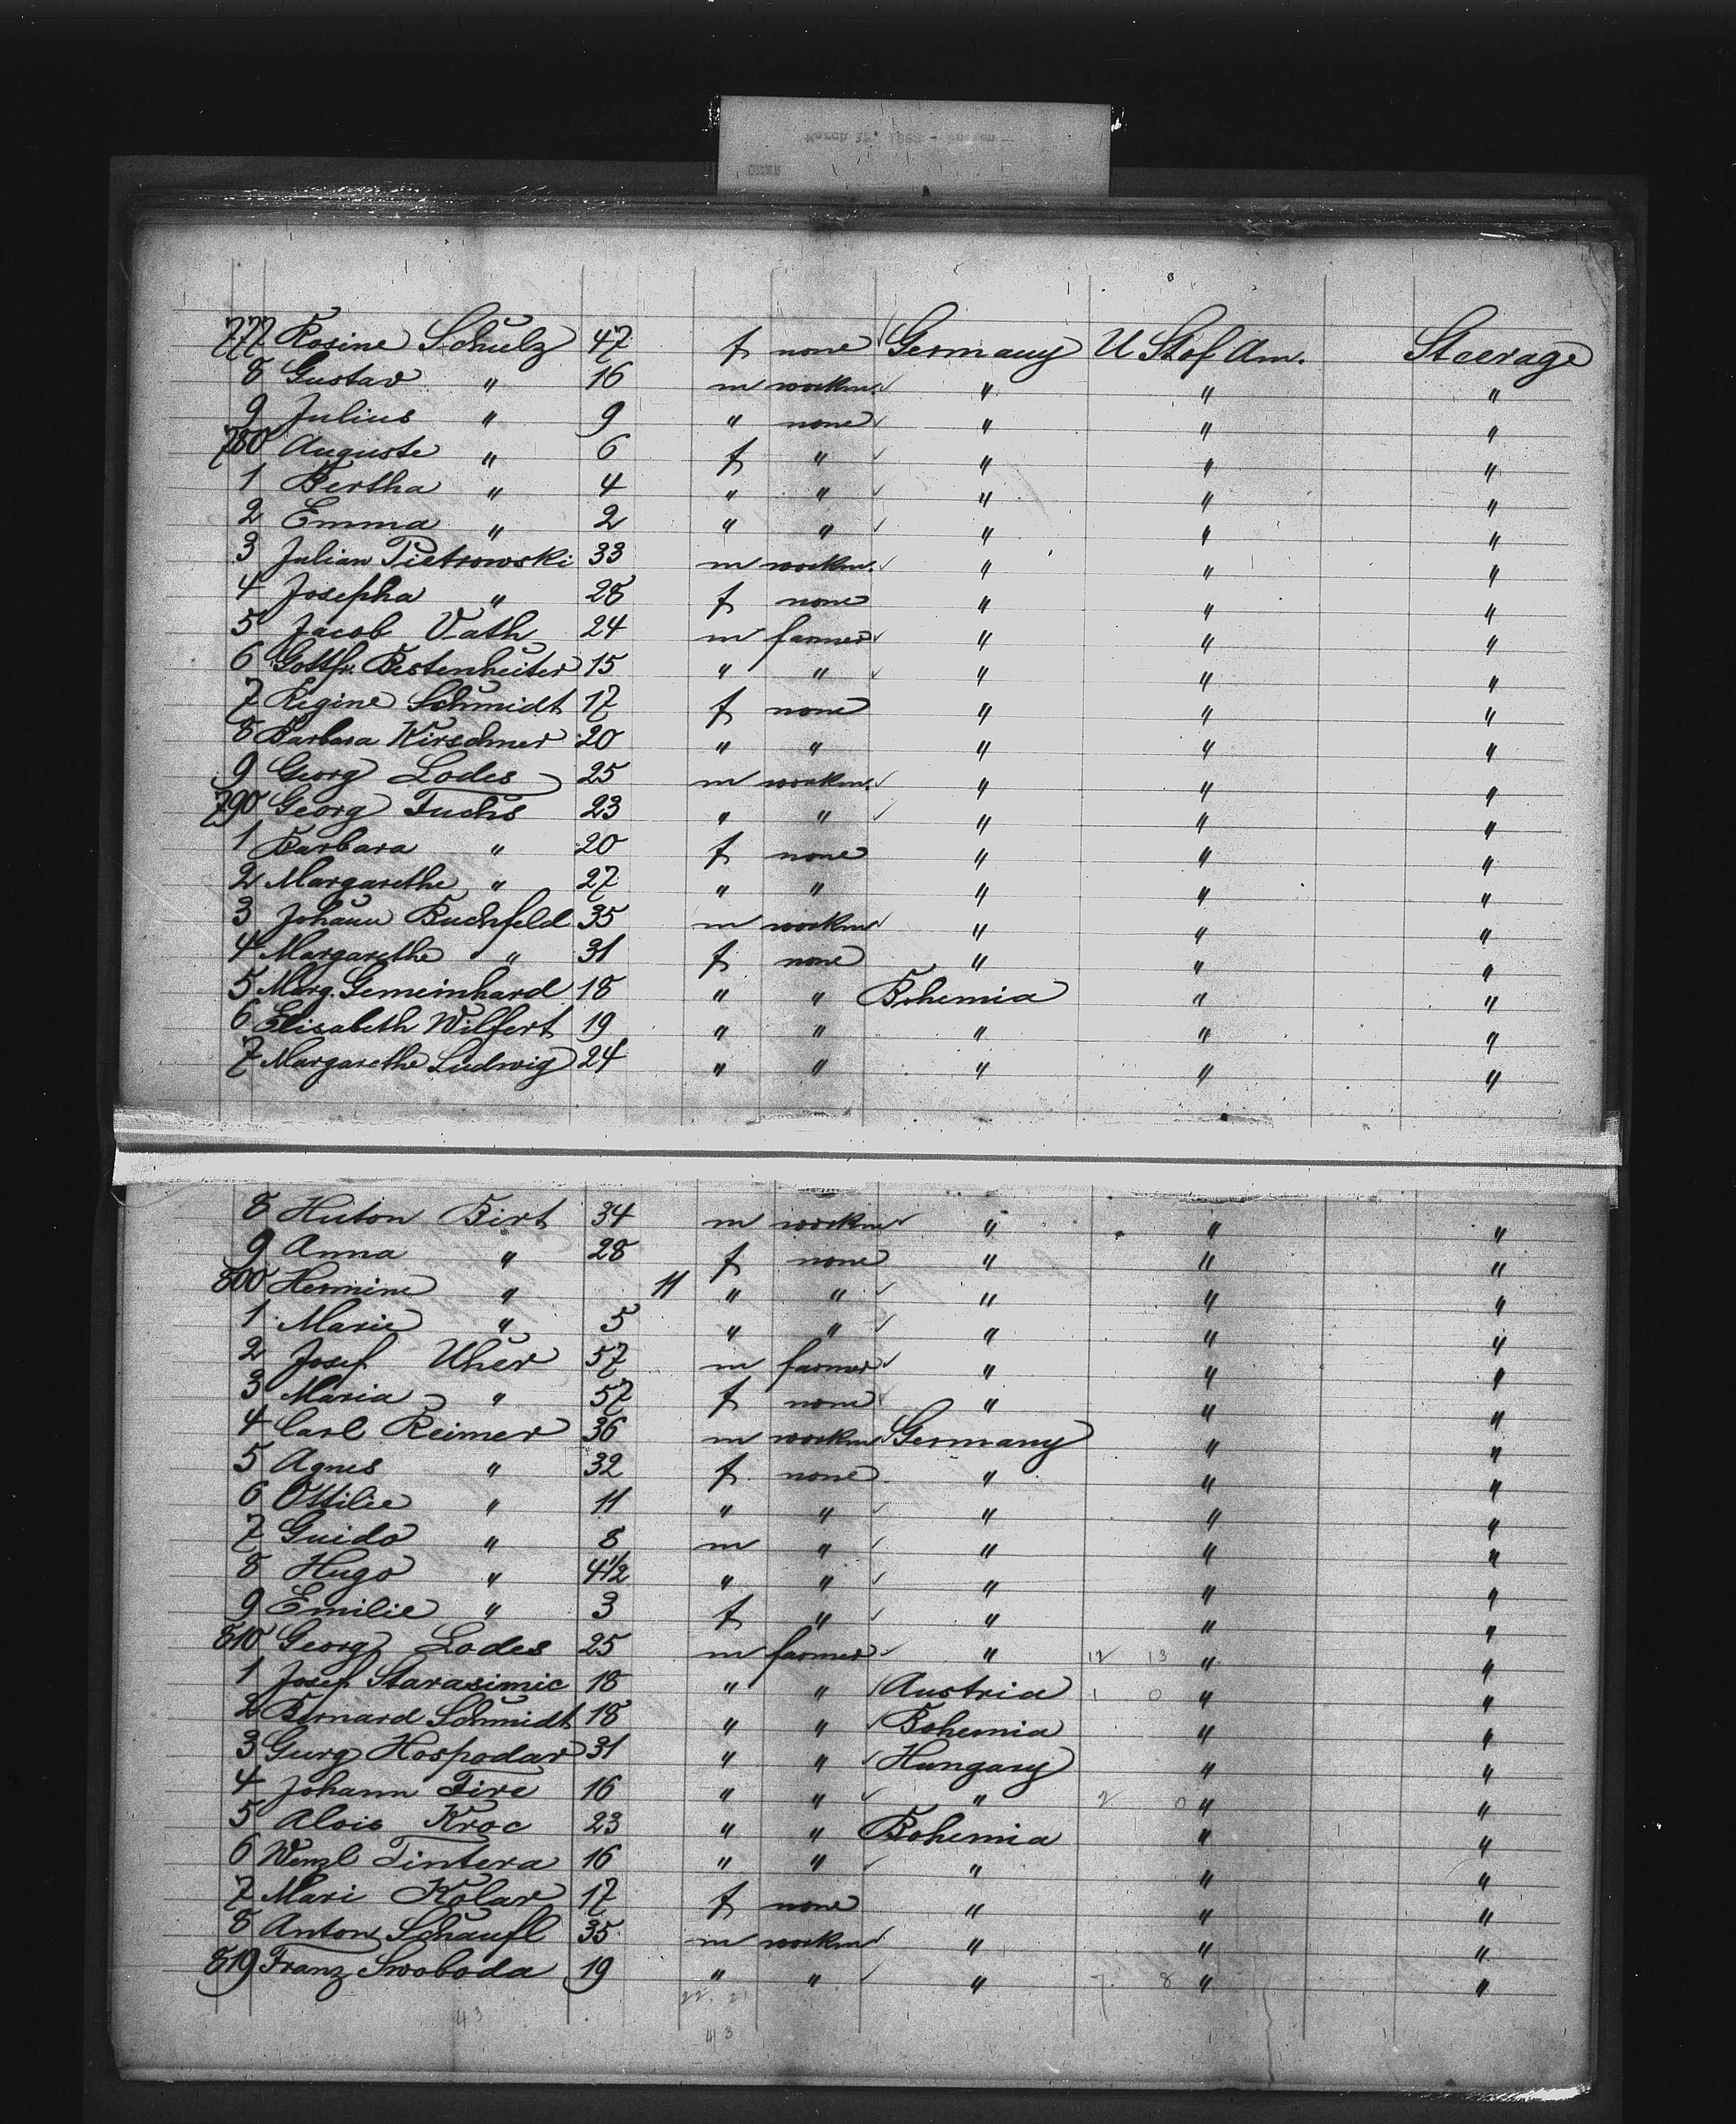 777 Rosine Schulz 47 f none Germany U St of Am. Steerage
8 Gustav " 16 m workm. " " "
9 Julius " 9 " none " " "
780 Auguste " 6 f " " " "
1 Bertha " 4 " " " " "
2 Emma " 2 " " " " "
3 Julian Pietrowski 33 m workm. " " "
4 Josepha " 28 f none " " "
5 Jacob Vath 24 m farmer " " "
6 Gottfr. Bestenheiter 15 " " " " "
7 Regine Schmidt 17 f none " " "
8 Barbara Kirschner 20 " " " " "
9 Georg Lodes 25 m workm. " " "
790 Georg Fuchs 23 " " " " "
1 Barbara " 20 f none " " "
2 Margarethe " 27 " " " " "
3 Johann Buchfeld 35 m workm " " "
4 Margarethe " 31 f none " " "
5 Marg. Gemeinhard 18 " " Bohemia " "
6 Elisabeth Wilfert 19 " " " " "
7 Margarethe Ludwig 24 " " " " "
8 Huton Birt 34 m workm " " "
9 Anna " 28 f none " " "
800 Hermine " 11 " " " " "
1 Marie " 5 " " " " "
2 Josef Uher 57 m farmer " " "
3 Maria " 57 f none " " "
4 Carl Reimer 36 m workm Germany " "
5 Agnes " 32 f none " " "
6 Ottilie " 11 " " " " "
7 Guido " 8 m " " " "
8 Hugo " 4 1/2 " " " " "
9 Emilie " 3 f " " " "
810 Georg Lodes 25 m farmer " 12 13 " "
1 Josef Starasimic 18 " " Austria 1 0 " "
2 Bernard Schmidt 18 " " Bohemia " "
3 Gurg Hospodar 31 " " Hungary " "
4 Johann Fire 16 " " " 2 0 " "
5 Alois Kroc 23 " " Bohemia " "
6 Wenzl Tintera 16 " " " " "
7 Mari Kolar 17 f none " " "
8 Anton Schaufl 35 m workm " " "
819 Franz Swoboda 19 " " " 7 8 " "
22 21
43
43